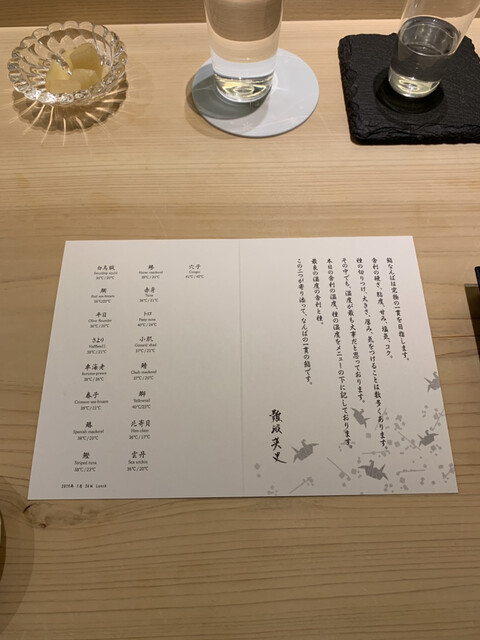 鮨なんばは究極の一貫を目指します。
舎利の硬さ、粘度、甘み、塩気、コク。
種の切りつけ、大きさ、厚み、気をつけることは数多くあります。
その中でも、温度が最も大事だと思っております。
本日の舎利の温度、種の温度をメニューの下に記しております。
最良の温度の舎利と種。
この二つが寄り添って、なんばの一貫の鮨です。
難波英史
白烏賊
Swordtip squid
36℃/20℃
鯛
Red sea-bream
平目
Olive flounder
さより
Halfbeak
38℃/21℃
車海老
kuruma prawn
38℃/36℃
春子
Crimson sea-bream
38℃/21℃
鰆
Spanish mackerel
38℃/20℃
鰹
Striped tuna
38℃/23℃
鯵
Horse mackerel
38℃/20℃
赤身
Tuna
トロ
Fatty tuna
40℃/24℃
小肌
Gizzard shad
37℃/22℃
鯖
Chub mackerel
37℃/20℃
鰤
Yellowtail
40℃/23℃
北寄貝
Hen-clam
36℃/17℃
雲丹
Sea urchin
穴子
Conger
2019年 1月 Lunch